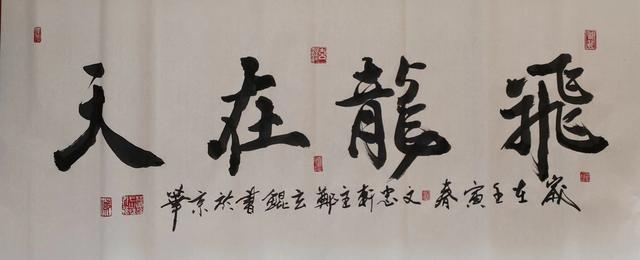 飛龍在天
歲在壬寅春文忠軒主鄭玄書於京華